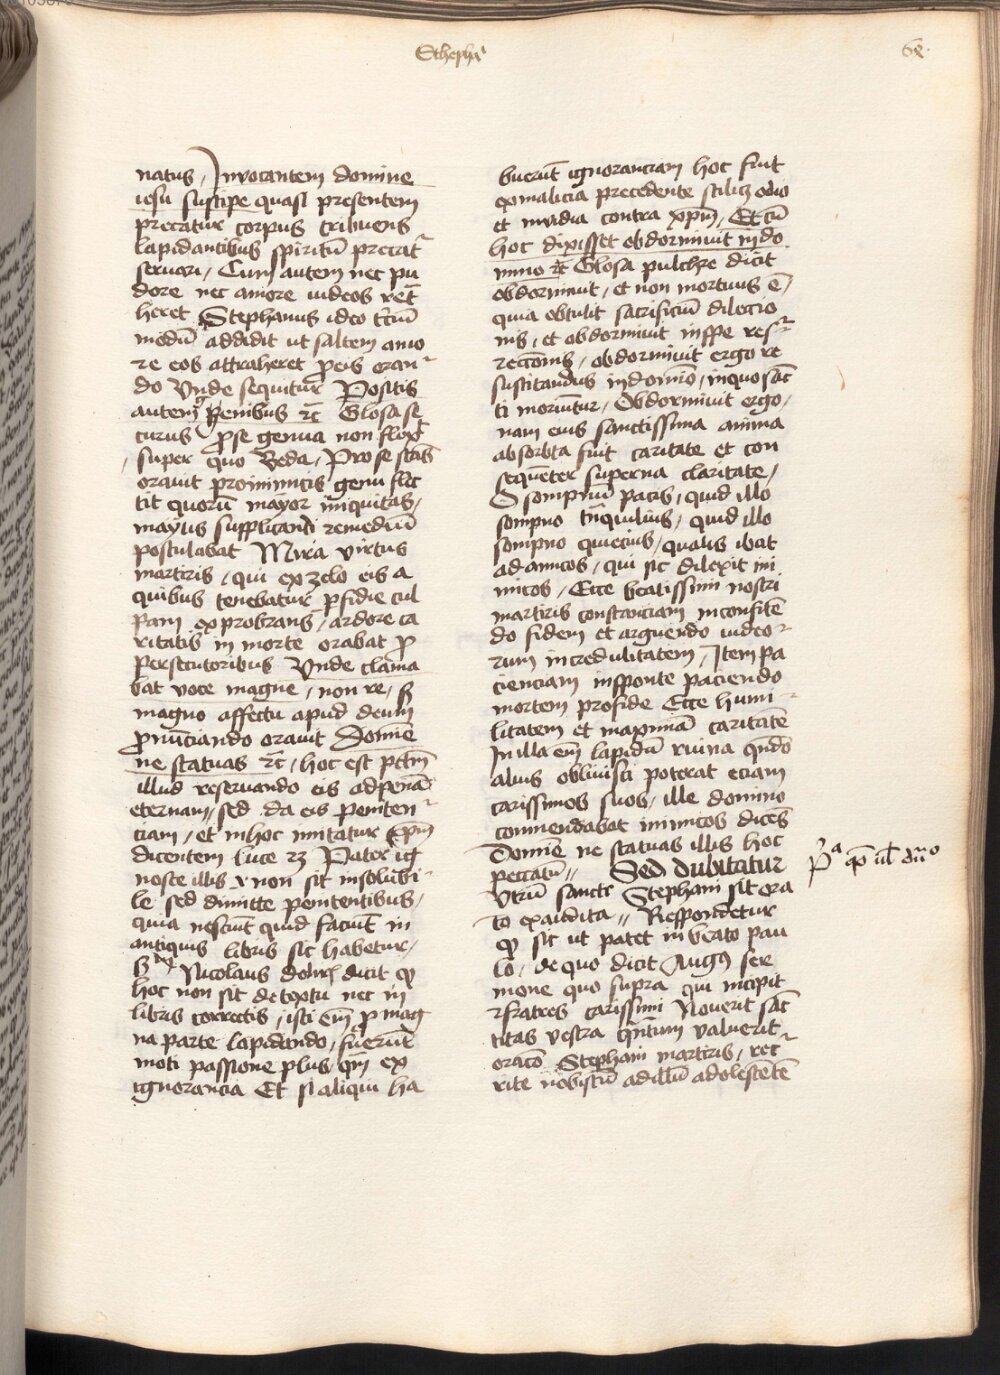 Stheph
natus / Invocantem domine
iesu suscipe quasi presentem
precatur corpus tribuens
lapidantibus spiritū precat̄
servari / Cum autem nec pu
dore nec amore iudeos ret̄
heret Stephanus ideo t̄ciū
modū addidit ut saltem amo
re eos attraheret p eis oran
do Unde sequitur Positis
autem genibus ⁊c̄ Glosa se
curus p se genua non flex̄
super quo Beda / Pro se stās
oravit pro inimicis genu flec
tit quorū mayor iniquitas /
mayus supplicandi remediū
postulabat Mira virtus
martiris / qui ex zelo eis a
quibus tenebatur pfidie cul
pam exprobrans / ardore ca
ritatis in morte orabat p
persecutoribus Unde clama
bat voce magne / non re / sꝫ
magno affectu apud deum
pnūciando oravit Domīe
ne statuas ⁊c / hoc est pctm̄
illud reservando eis ad penā
eternam / sed da eis peniten
ciam / et in hoc imitatur xp̄m
dicentem luce 23 Pater ig
nosce illis non sit insolubi
le sed dimitte penitentibus /
quia nesciūt quid faciūt in
antiquis libris sic habetur /
sꝫ Nicolaus dicit qꝫ
hoc non sit de textu nec in
libris correctis / isti em̄ p mag
na parte lapidando / fuerūt
moti passione plus qm̄ ex
ignorancia Et si aliqui ha
buerūt ignoranciam hoc fuit
ex malicia precedente scilicꝫ odio
et invidia contra xp̄m / Et cū
hoc dixisset obdormivit in do
mino ⁊c Glosa pulchre dicit
obdormivit / et non mortuus ē /
quia obtulit sacrificiū dilectio
nis / et obdormivit in spe res
reccōnis / obdormivit ergo re
suscitandus in domīo / in quo sāc
ti moriūtur / Obdormivit ergo /
nam eius sanctissima anima
absorbta fuit caritate et con
sequēter superna claritate /
O sompniū pacis / quid illo
sompno tn̄quilius / quid illo
sompno quiecius / qualis ibat
ad amicos / qui sic dilexit ini
micos / Ecce beatissimi nostri
martiris constanciam in confitē
do fidem et arguendo iudeo
rum incredulitatem / Item pa
cienciam in sponte paciendo
mortem pro fide Ecce humi
litatem et maximā caritatē
In illa em̄ lapidū ruina qn̄do
alius oblivisci poterat eciam
carissimos suos / ille domino
commendabat inimicos dicēs
Domīe ne statuas illis hoc
peccatū // Sed dubitatur
Utrū sancti Stephani sit ora
to exaudita // Respondetur
qꝫ sic ut patet in beato pau
lo / de quo dicit Augꝰ ser
mone quo supra qui incipit
fratres carissimi Noverit sāc
titas vestra qn̄tum valuerit
oracō Stephani martiris / rec
rite nobiscū ad illū adolescētē